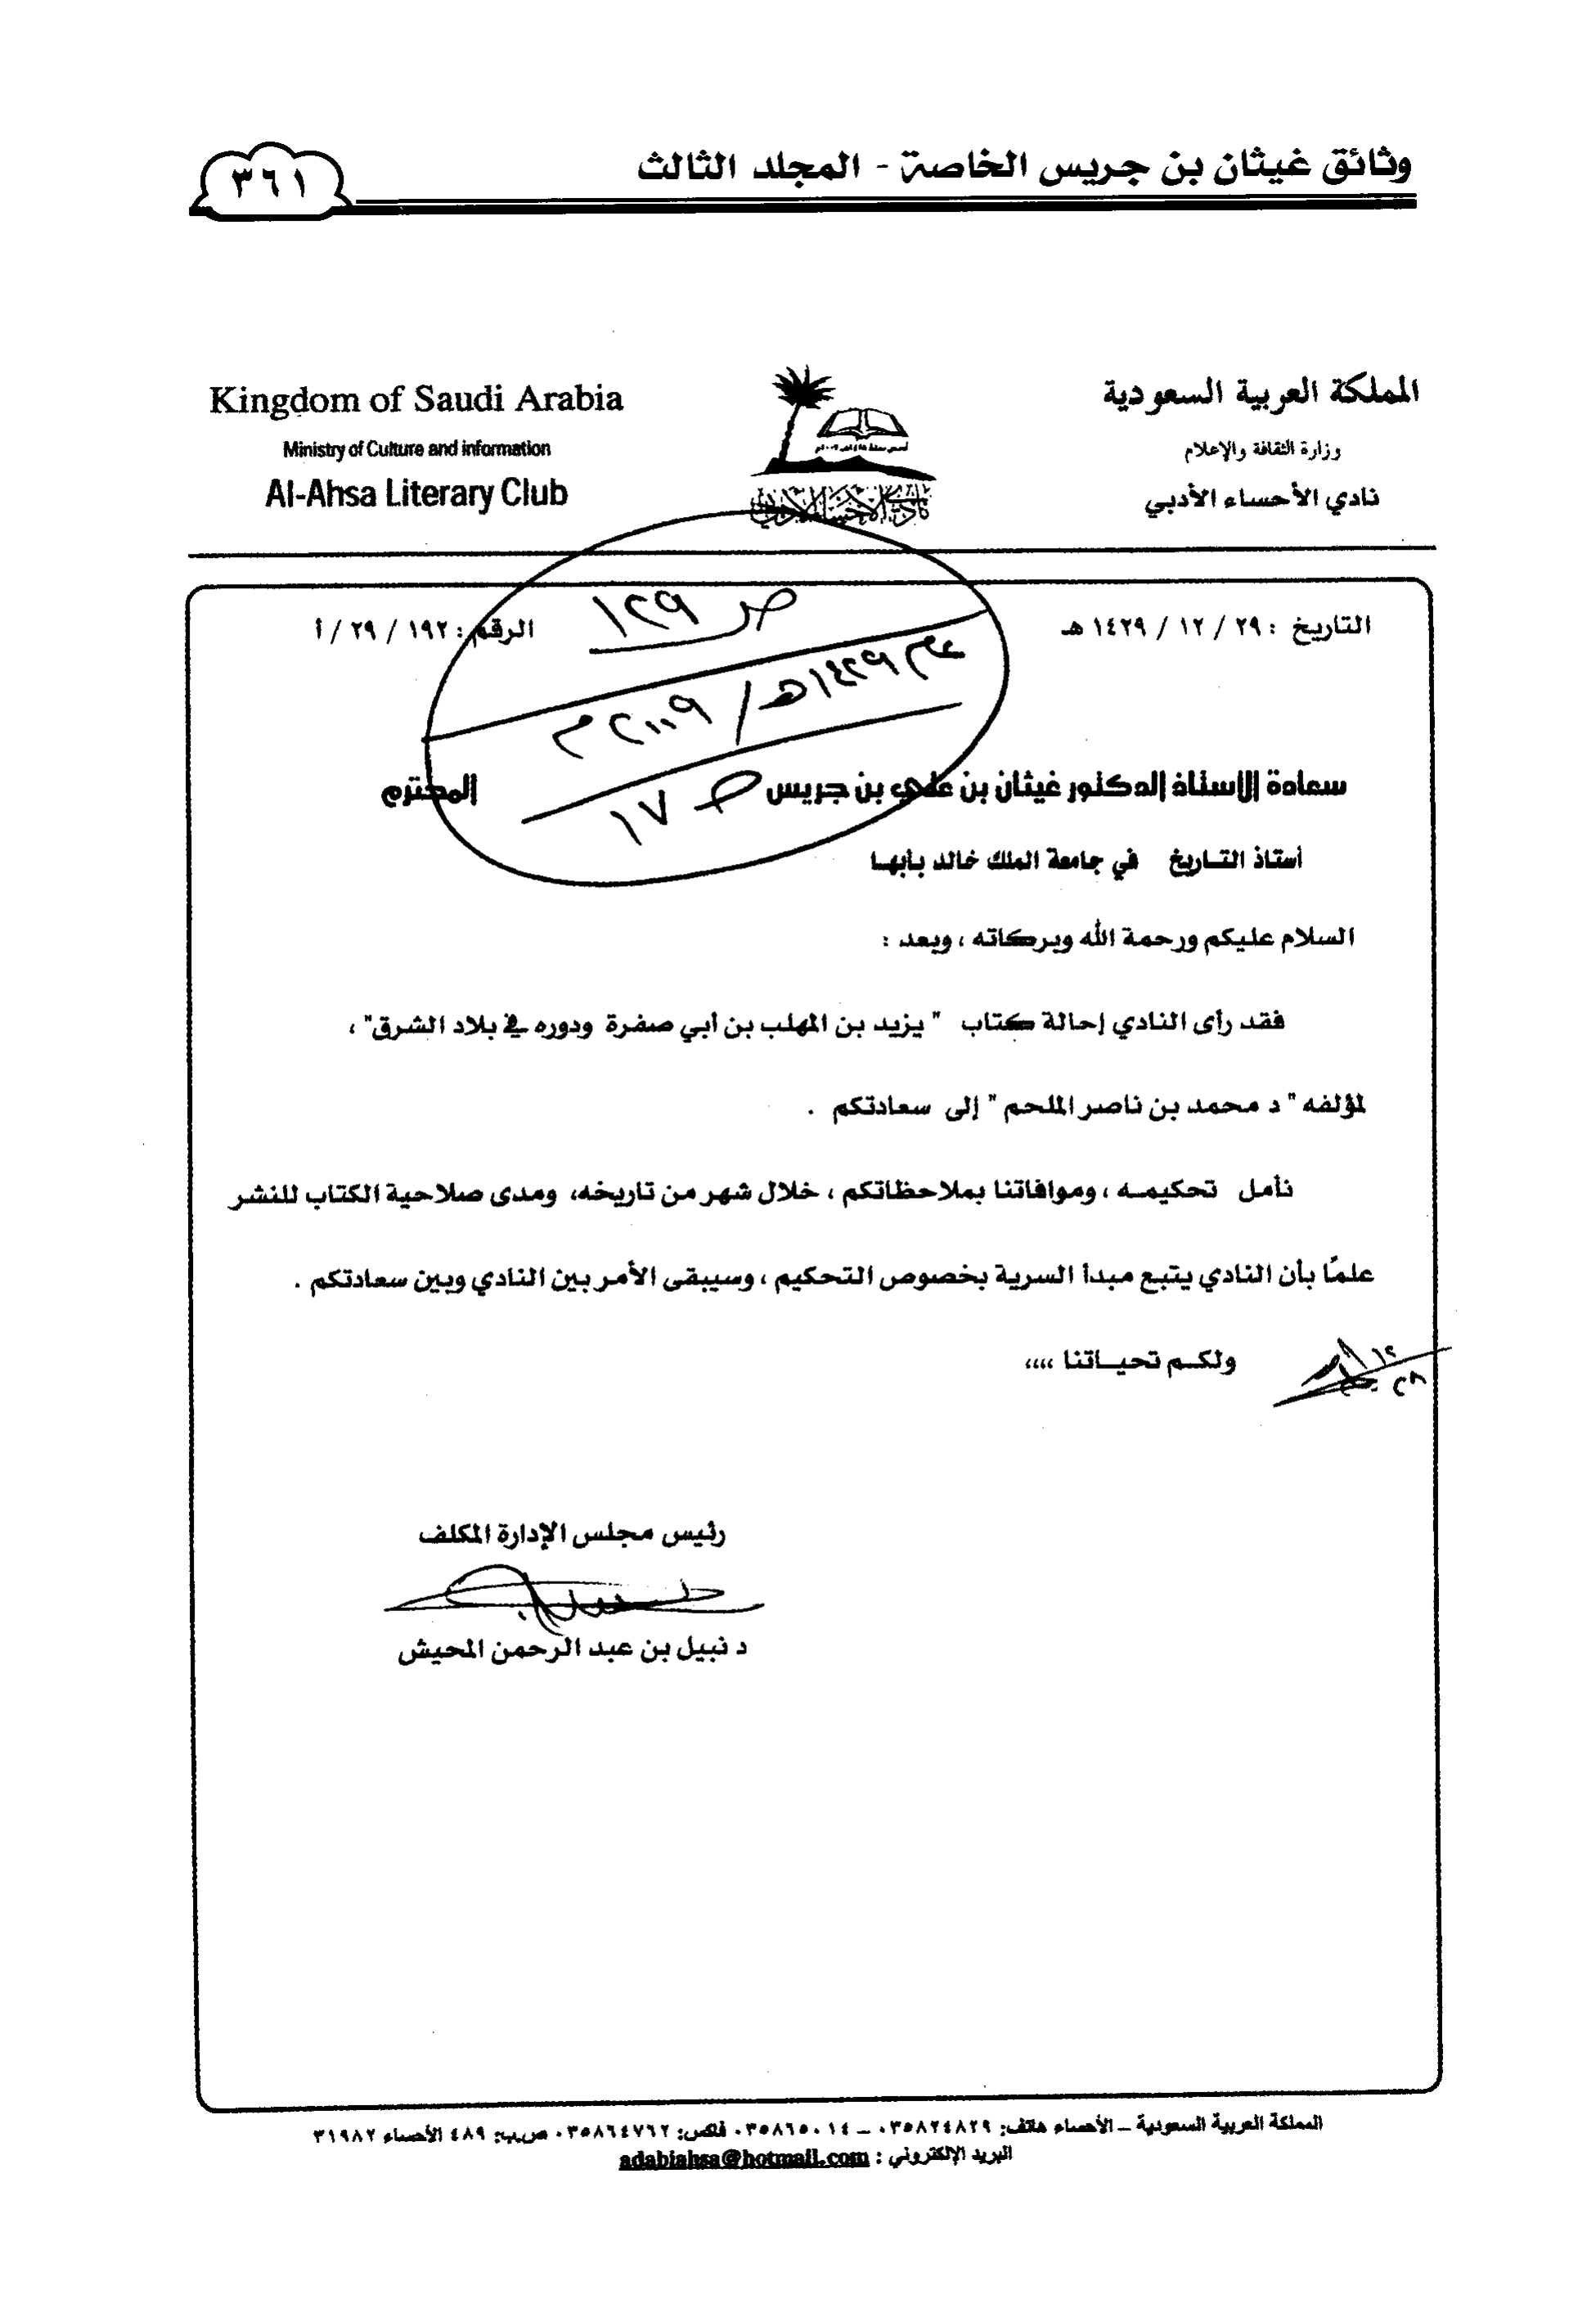 وثائق غيثان بن جريس الخاصة - المجلد الثالث
٣٦١
المملكة العربية السعودية
وزارة الثقافة والإعلام
نادي الأحساء الأدبي
Kingdom of Saudi Arabia
Ministry of Culture and information
Al-Ahsa Literary Club
نادي الأحساء الأدبي
التاريخ : ٢٩ / ١٢ / ١٤٢٩ هـ
الرقم : ١٩٢ / ٢٩ / أ
ص ١٢٩
عام ١٤٢٩هـ / ٢٠٠٩م
ص ١٧
سعادة الاستاذ الدكتور غيثان بن علي بن جريس المحترم
أستاذ التـاريخ في جامعة الملك خالد بأبهـا
السلام عليكم ورحمة الله وبركاته ، وبعد :
فقد رأى النادي إحالة كتاب " يزيد بن المهلب بن أبي صفرة ودوره في بلاد الشرق" ،
لمؤلفه " د محمد بن ناصر الملحم " إلى سعادتكم .
نأمل تحكيمـه ، وموافاتنا بملاحظاتكم ، خلال شهر من تاريخه، ومدى صلاحية الكتاب للنشر
علمًا بأن النادي يتبع مبدأ السرية بخصوص التحكيم ، وسيبقى الأمر بين النادي وبين سعادتكم .
ولكـم تحيـاتنا ،،،،
رئيس مجلس الإدارة المكلف
د نبيل بن عبد الرحمن المحيش
المملكة العربية السعودية – الأحساء هاتف: ٠٣٥٨٢٤٨٢٩ – ٠٣٥٨٦٥٠١٤ فاكس: ٠٣٥٨٦٤٧٦٢ ص.ب: ٤٨٩ الأحساء ٣١٩٨٢
البريد الإلكتروني : adabiahsa@hotmail.com